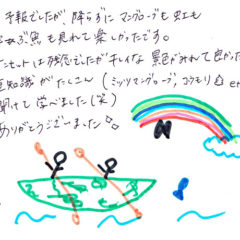 予報でしたが、降らずにマングローブも虹も
ぶ魚も見れて楽しかったです。
ンセットは残念でしたがキレイな景色がみれて良かった
知識がたくさん(ミッツマングローブ、コウモリ et
聞けて学べました(笑)
ありがとうございました